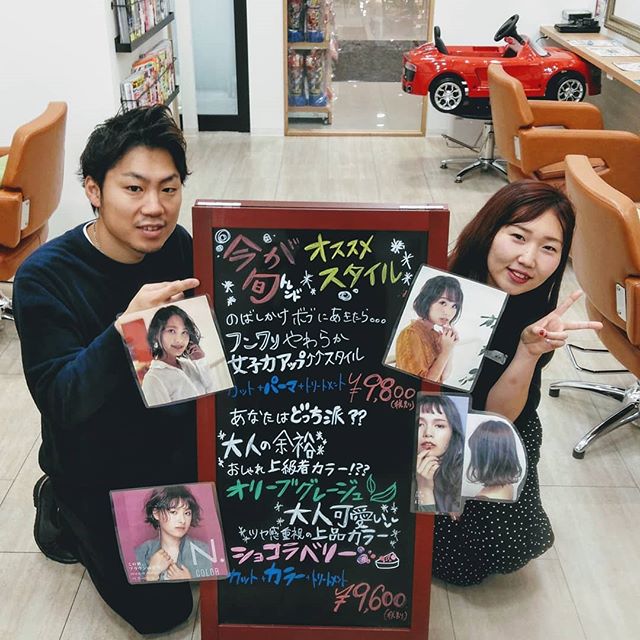 今が
旬んド
オススメ
スタイル
のばしかけボブにあきたら...
フンワリやわらか
女子力アップ⤴スタイル
カット+パーマ+トリートメント ¥9.800
(税別)
あなたはどっち派??
大人の余裕
おしゃれ上級者カラー!??
オリーブグレージュ
大人可愛い
ツヤ感重視の上品カラー
ショコラベリー
カット+カラー+トリートメント
¥9,600
(税別)
N.
COLOR